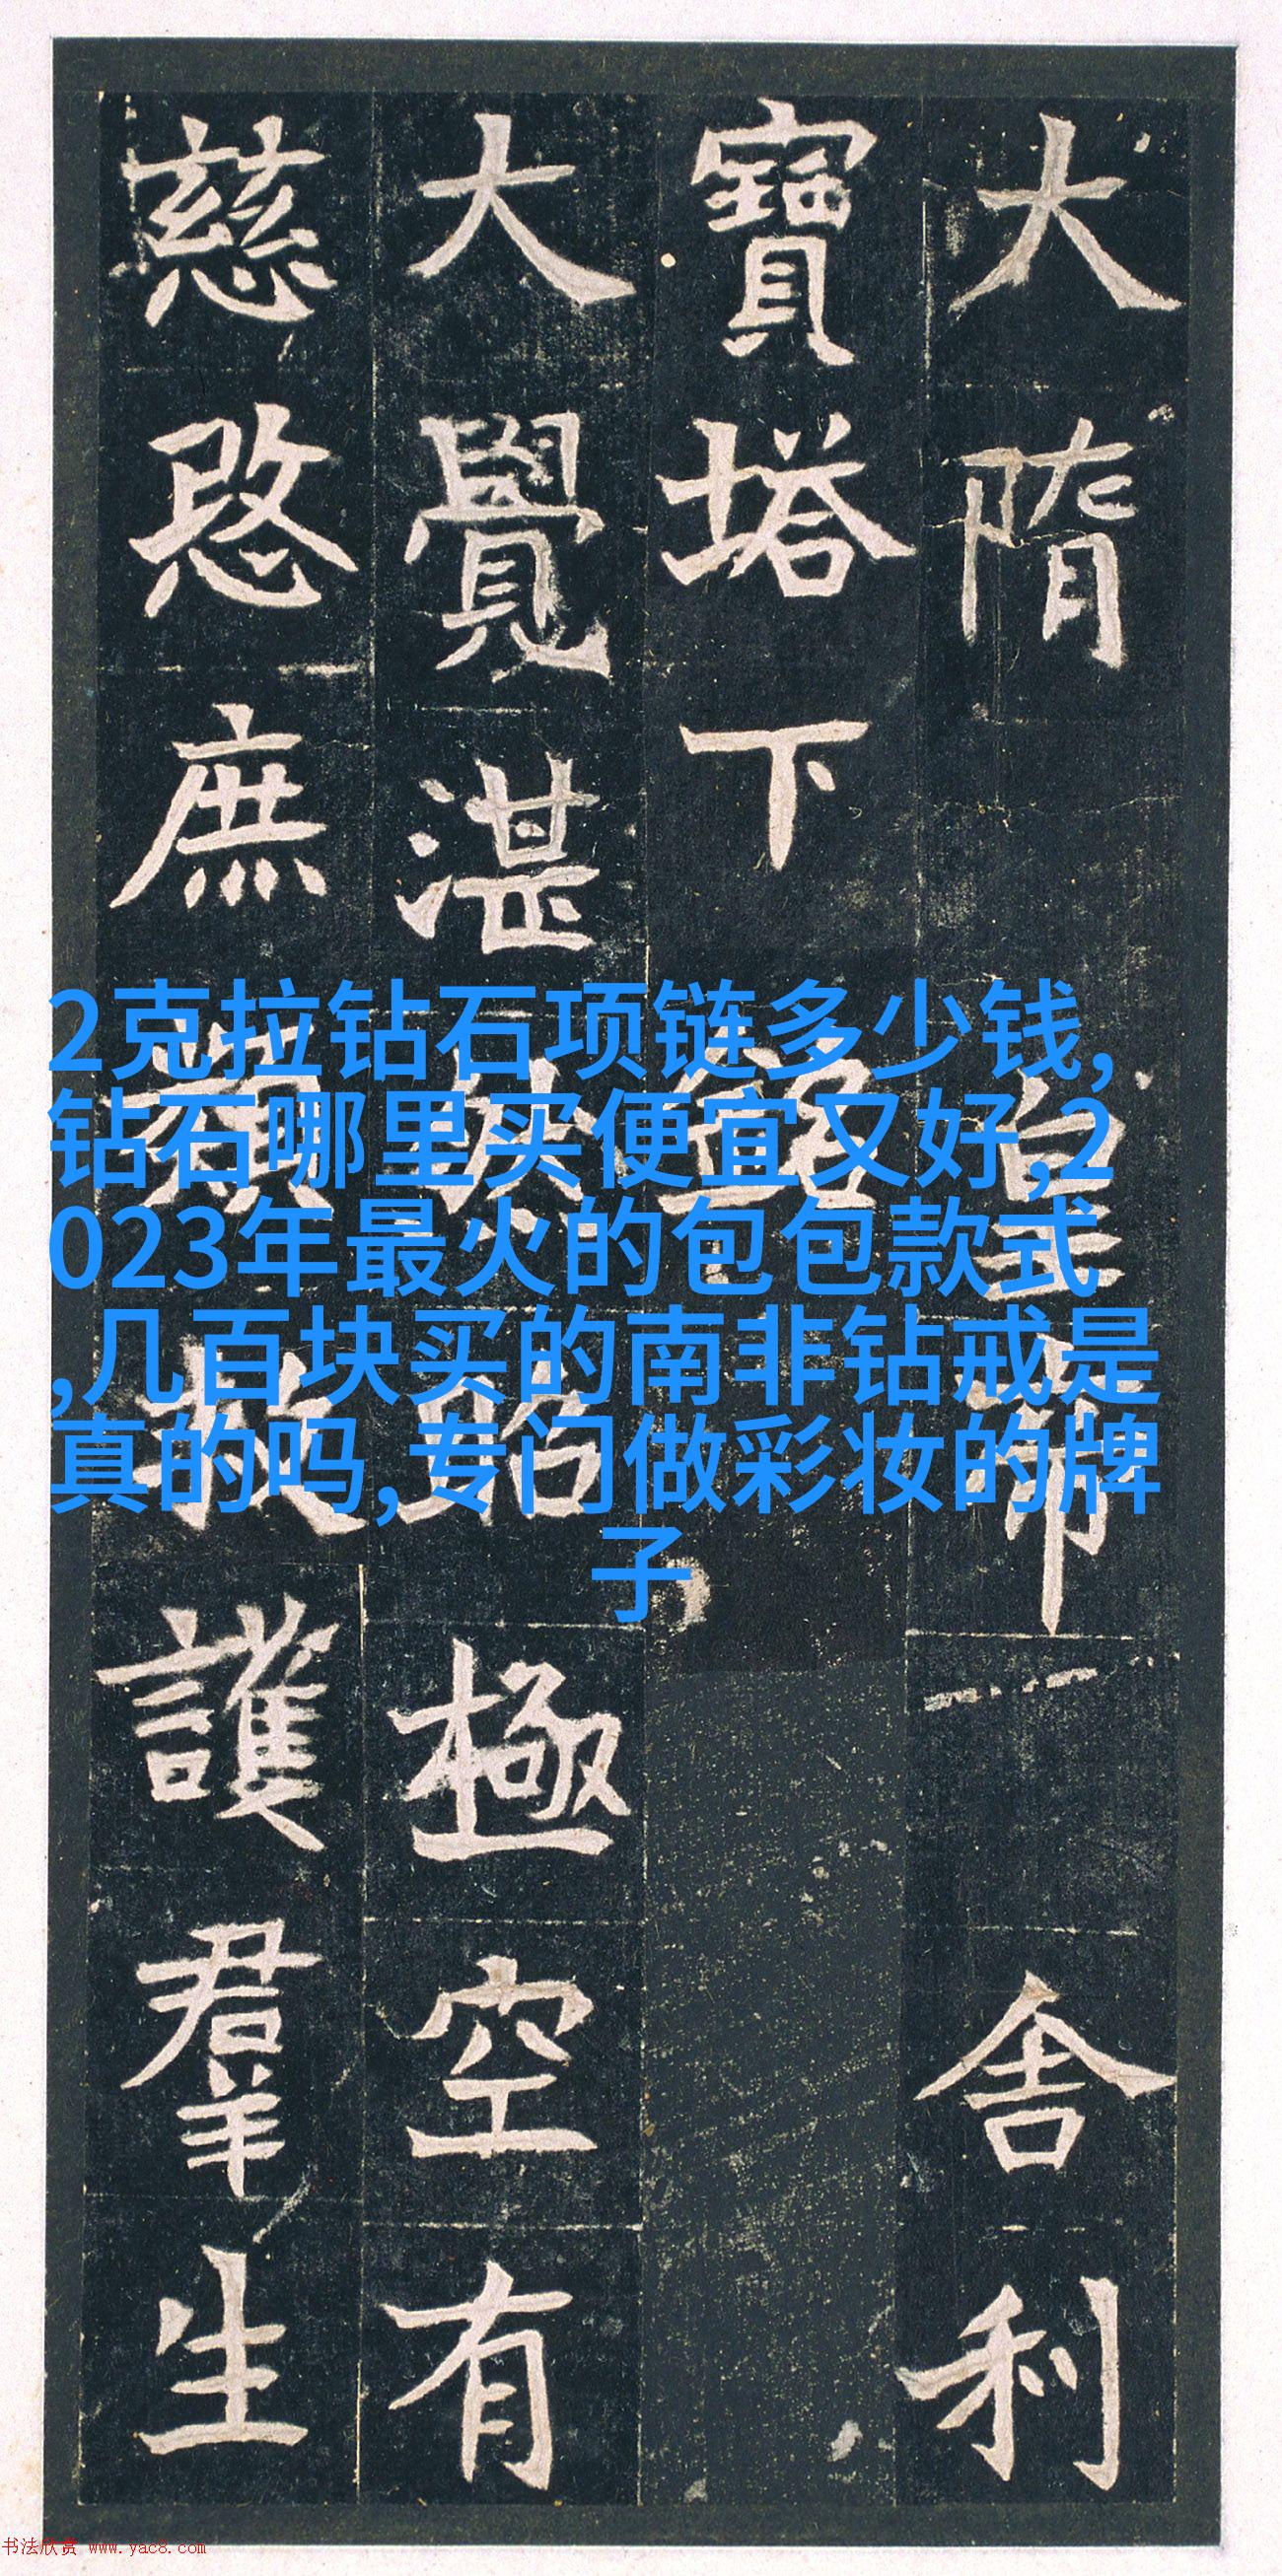 大隋皇帝舍利
寶塔下銘
大覺湛然昭極空有
慈愍庶類救護羣生
2克拉钻石项链多少钱,
钻石哪里买便宜又好,2
023年最火的包包款式
,几百块买的南非钻戒是
真的吗,专门做彩妆的牌
子
书法欣赏 www.yac8.com